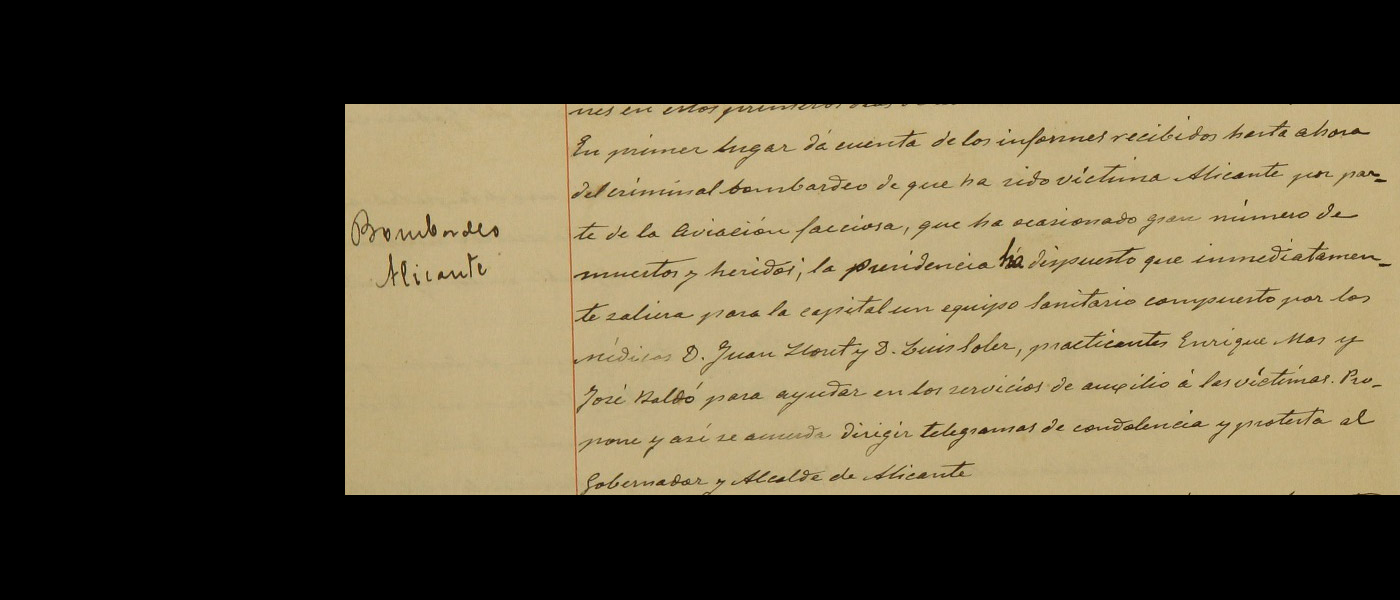 nes en estos primeros dias
En primer lugar dá cuenta de los informes recibidos hasta ahora
del criminal bombardeo de que ha sido víctima Alicante por par-
te de la Aviación facciosa, que ha ocasionado gran número de
Bombardeo
muertos y heridos, la presidencia há dispuesto que inmediatamen-
Alicante
te saliera para la capital un equipo Sanitario compuesto por los
médicos D. Juan Llort y D. Luis Soler, practicantes Enrique Mas y
José Baldó para ayudar en los servicios de auxilio á las víctimas. Pro-
pone y así se acuerda dirigir telegramas de condolencia y protesta al
Gobernador y Alcalde de Alicante